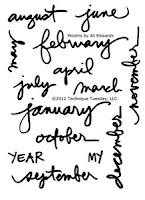 august june
Months by Ali Edwards
may
february
april
july march
©2012 Technique Tuesday, LLC.
january
october
YEAR MY
september
december
november